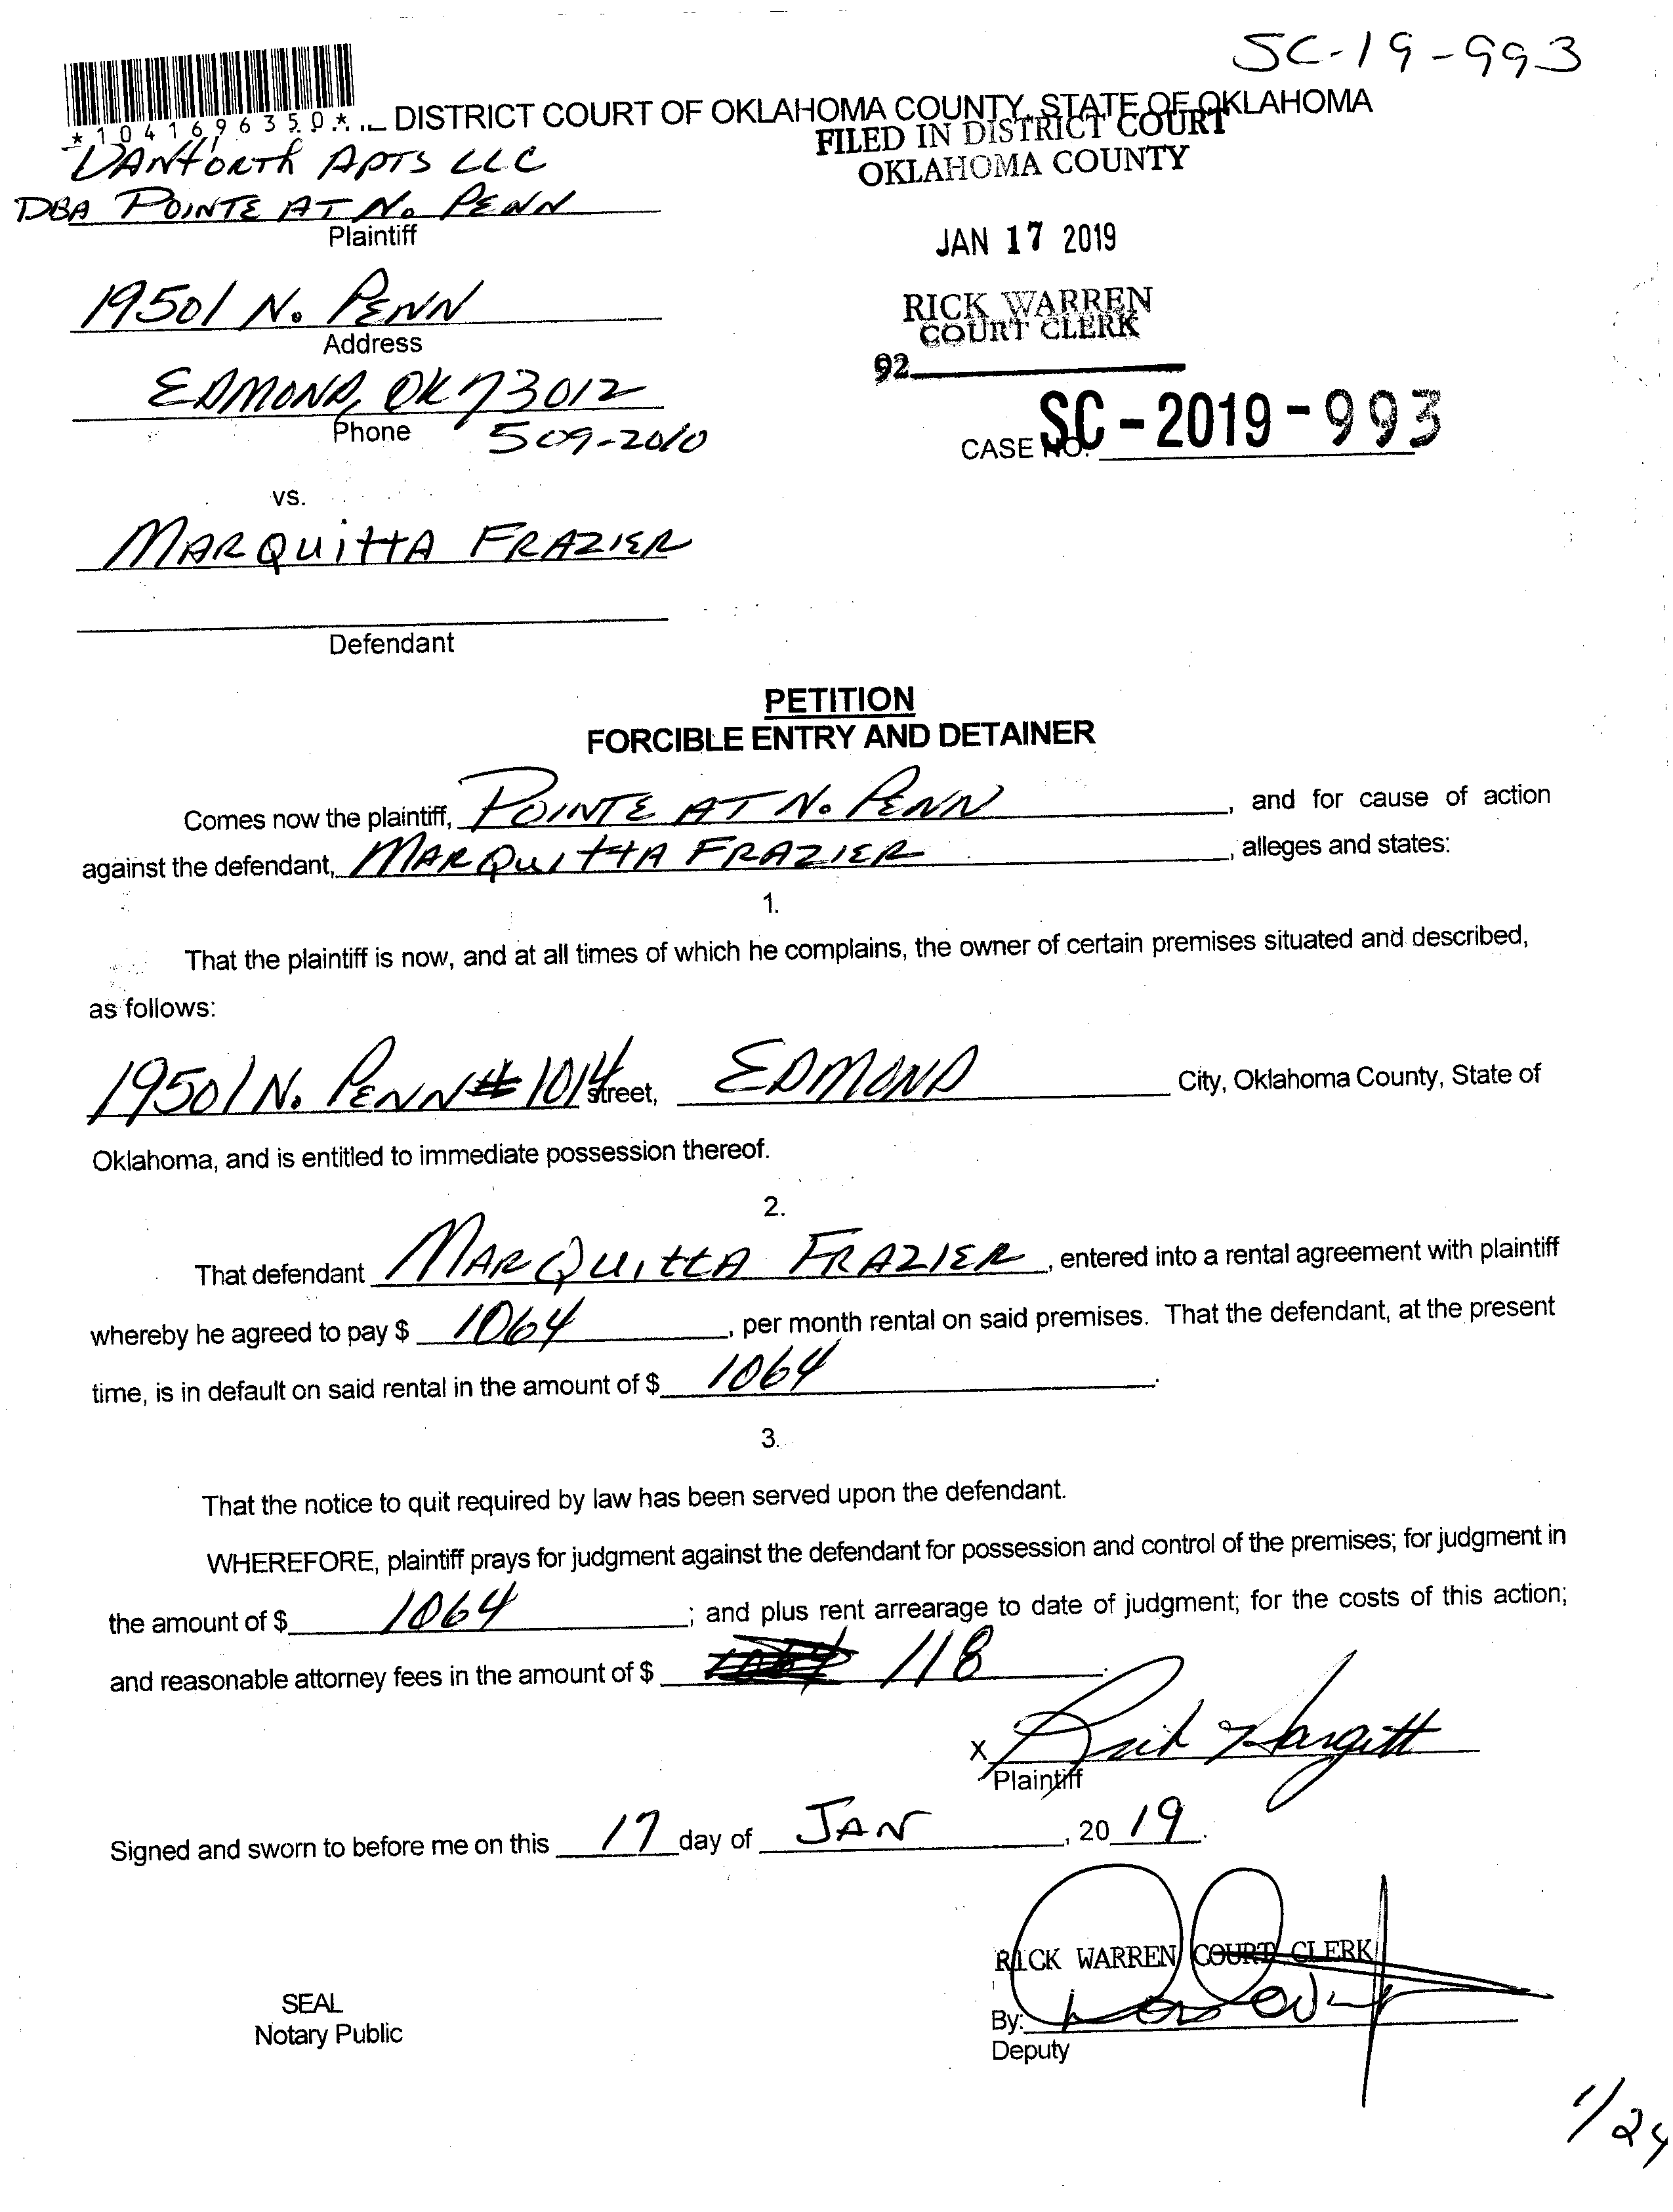 SC-19-993
*1041696350*
DISTRICT COURT OF OKLAHOMA COUNTY, STATE OF OKLAHOMA
FILED IN DISTRICT COURT
OKLAHOMA COUNTY
DANFORTH APTS LLC
DBA POINTE AT N. PENN
Plaintiff
JAN 17 2019
19501 N. PENN
Address
RICK WARREN
COURT CLERK
92
EDMOND, OK 73012
Phone 509-2010
CASE NO. SC-2019-993
vs.
MARQUITTA FRAZIER
Defendant
PETITION
FORCIBLE ENTRY AND DETAINER
Comes now the plaintiff, POINTE AT N. PENN, and for cause of action
against the defendant, MARQUITTA FRAZIER, alleges and states:
1.
That the plaintiff is now, and at all times of which he complains, the owner of certain premises situated and described,
as follows:
19501 N. PENN #1014 street, EDMOND City, Oklahoma County, State of
Oklahoma, and is entitled to immediate possession thereof.
2.
That defendant MARQUITTA FRAZIER, entered into a rental agreement with plaintiff
whereby he agreed to pay $ 1064, per month rental on said premises. That the defendant, at the present
time, is in default on said rental in the amount of $ 1064.
3.
That the notice to quit required by law has been served upon the defendant.
WHEREFORE, plaintiff prays for judgment against the defendant for possession and control of the premises; for judgment in
the amount of $ 1064; and plus rent arrearage to date of judgment; for the costs of this action;
and reasonable attorney fees in the amount of $ 118.
x
Hargett
Plaintiff
Signed and sworn to before me on this 17 day of JAN, 2019.
RICK WARREN COURT CLERK
SEAL
Notary Public
By:
Deputy
1/24